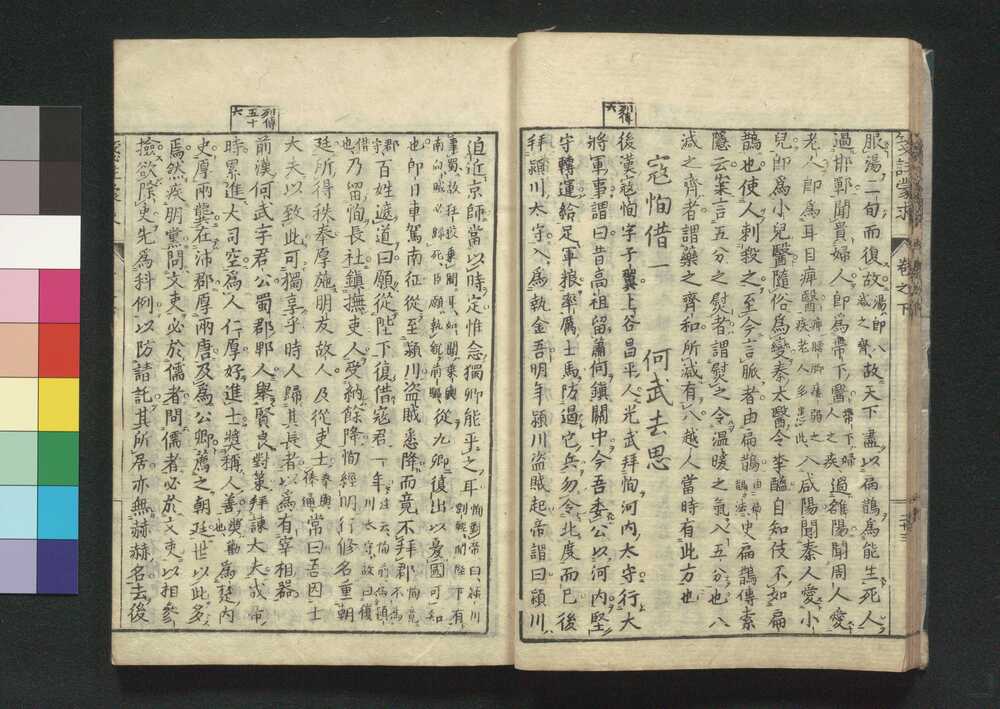 列傳
六
服湯二旬而復故湯卽八減之齊故天下盡以扁鵲爲能生死人
過邯鄲聞貴婦人卽爲帶下醫帶下婦人之疾過雒陽聞周人愛
老人卽爲耳目痺醫入咸陽聞秦人愛小
兒卽爲小兒醫隨俗爲變秦太醫令李醯自知伎不如扁
鵲也使人刺殺之至今言脈者由扁鵲也史扁鵲傳索
隱云案言五分之熨者謂熨之令溫暖之氣入五分也八
減之齊者謂藥之齊和所減有八越人當時有此方也
寇恂借一 何武去思
後漢寇恂字子翼上谷昌平人光武拜恂河內太守行大
將軍事謂曰昔高祖留蕭何鎭關中今吾委公以河內堅
守轉運給足軍粮率厲士馬防遏它兵勿令北度而已後
拜潁川太守入爲執金吾明年潁川盜賊起帝謂曰潁川
列傳
五十
六
迫近京師當以時定惟念獨卿能平之耳
從九卿復出以憂國可知
也卽日車駕南征從至潁川盜賊悉降而竟不拜郡
百姓遮道曰願從陛下復借寇君一年
乃留恂長社鎭撫吏人受納餘降恂經明行修名重朝
廷所得秩奉厚施朋友故人及從吏士常曰吾因士
大夫以致此可獨享乎時人歸其長者以爲有宰相器
前漢何武字君公蜀郡郫人舉賢良對策拜諫大夫成帝
時累進大司空爲人仁厚好進士獎稱人善爲楚內
史厚兩龔在沛郡厚兩唐及爲公卿薦之朝廷世以此多
焉然疾朋黨問文吏必於儒者問儒者必於文吏以相參
撿欲除吏先爲科例以防請託其所居亦無赫赫名去後